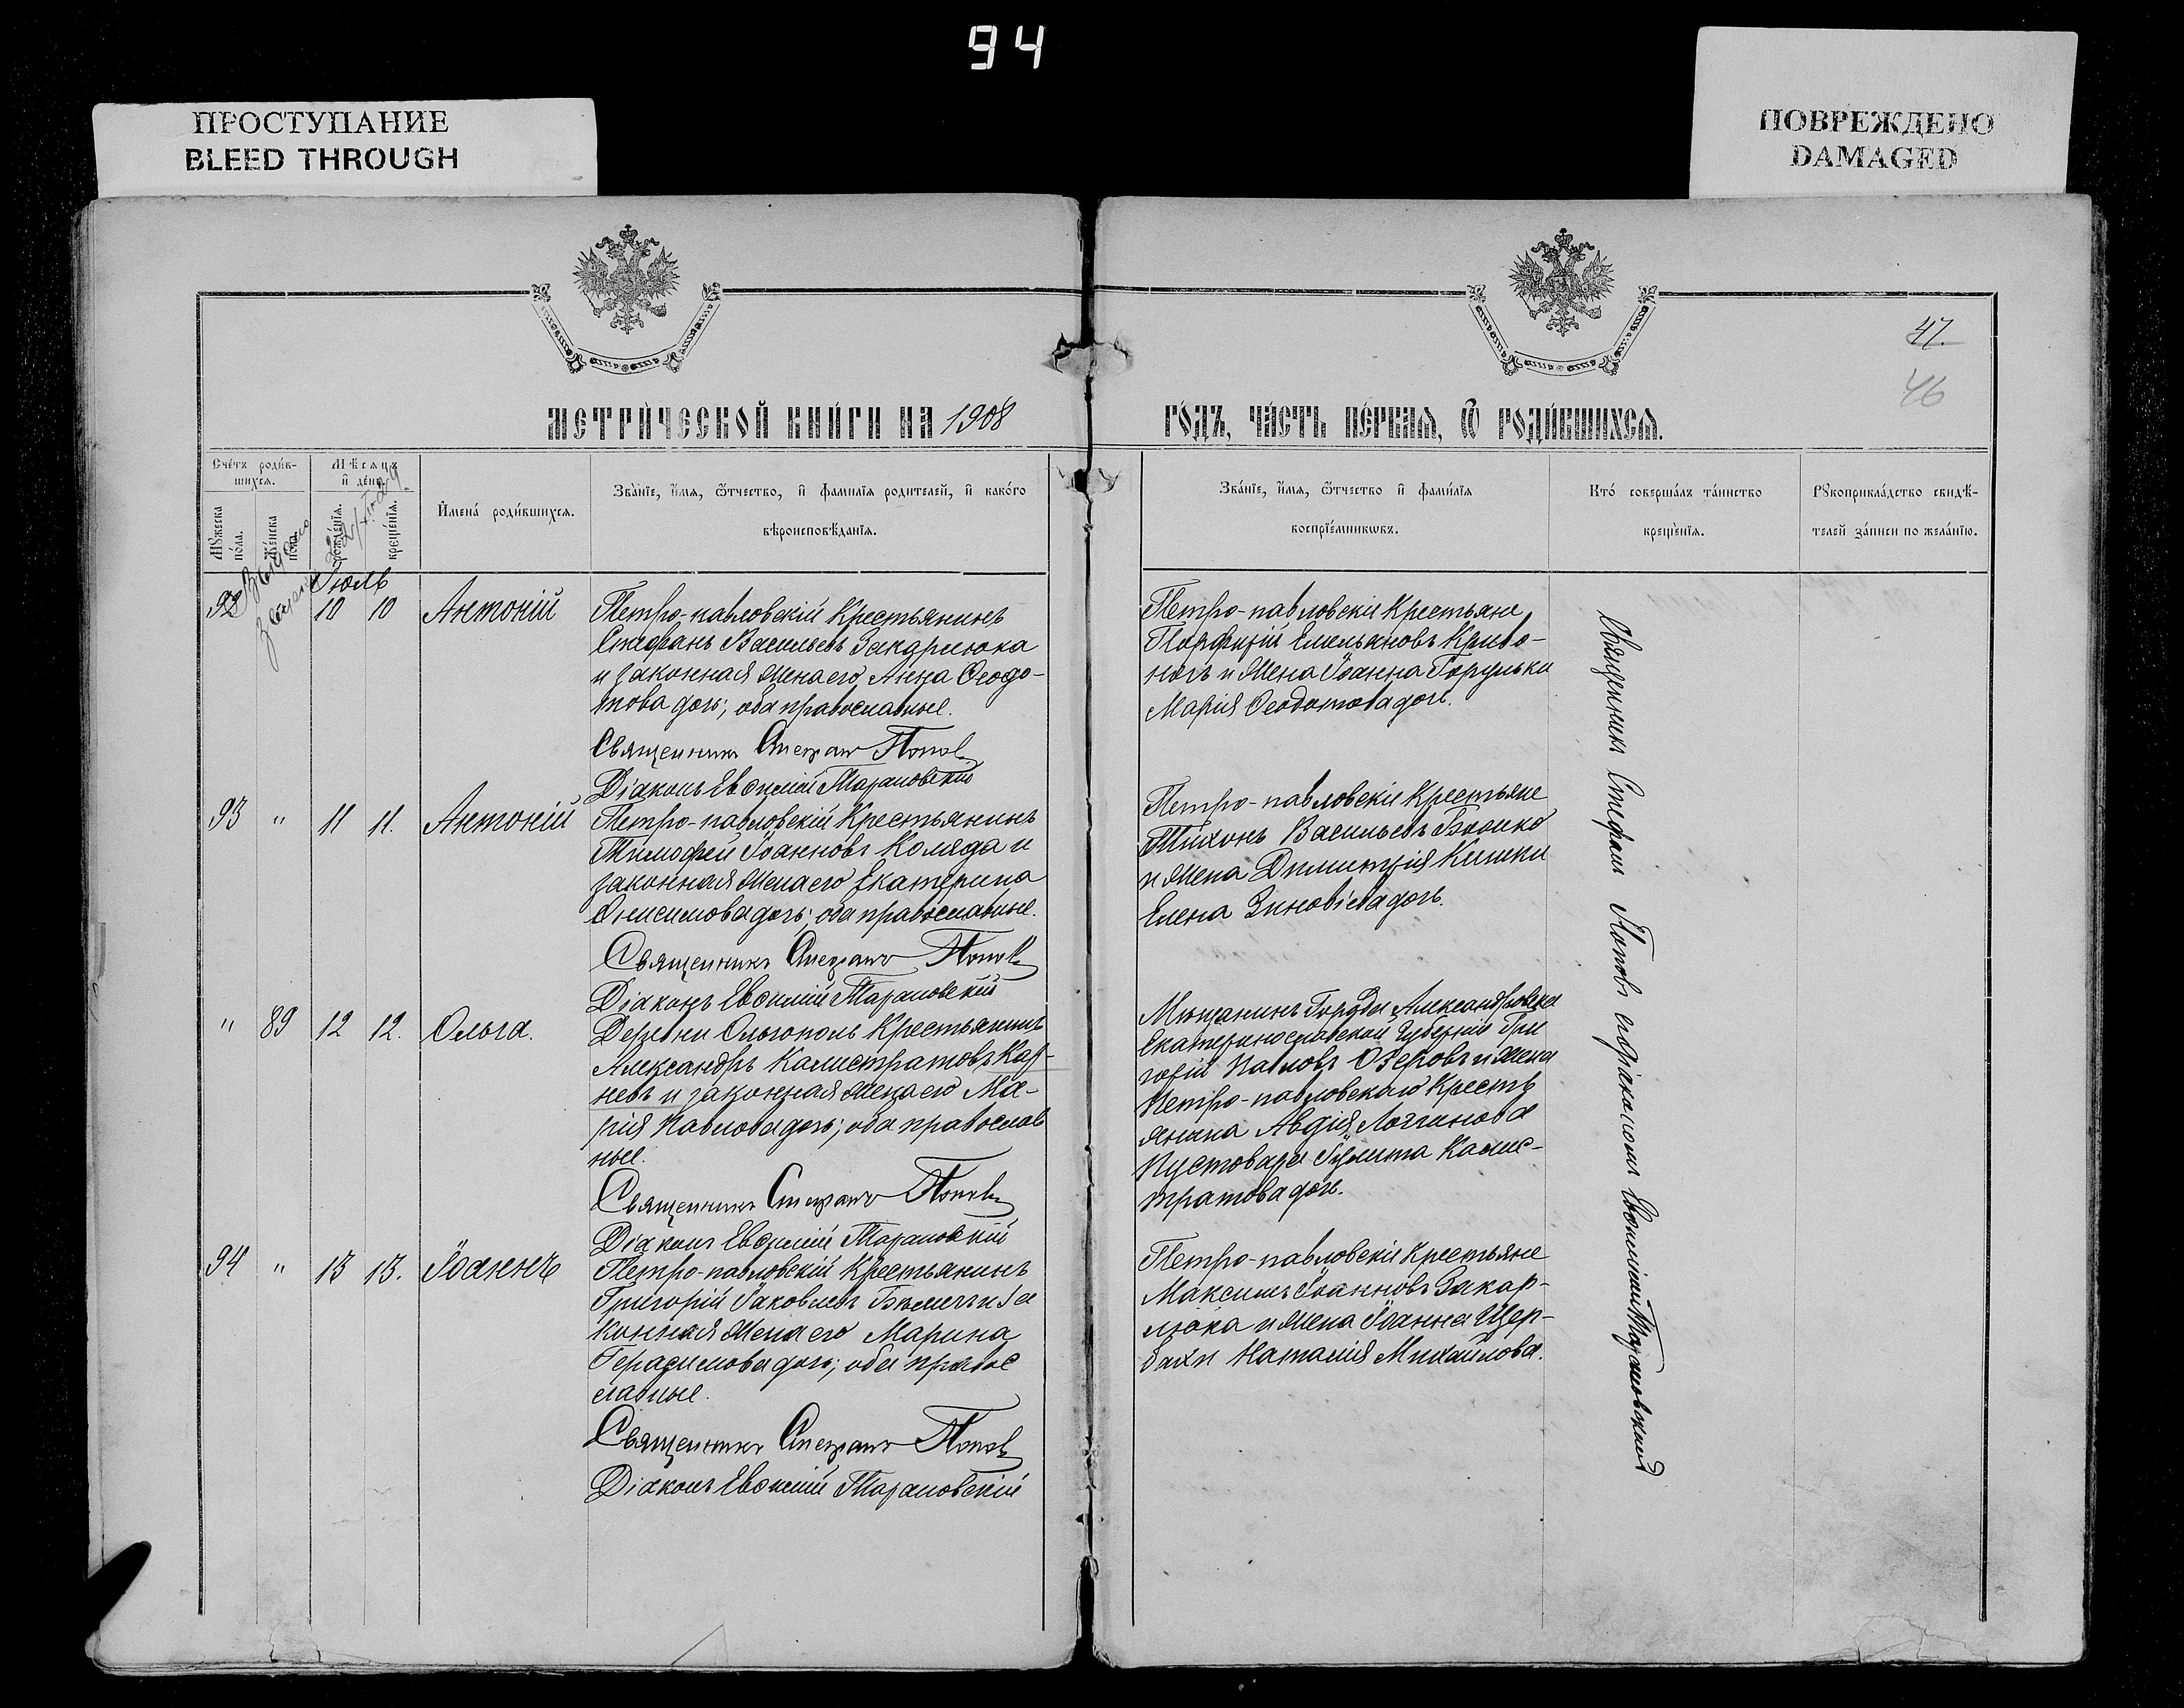 94
ПРОСТУПАНИЕ
BLEED THROUGH
ПОВРЕЖДЕНО
DAMAGED
47.
46
МЕТРИ́ЧЕСКОЙ КНИ́ГИ НА 1908
ГО́ДЪ, ЧА́СТЬ ПЕ́РВАЯ, Ѽ РОДИ́ВШИХСЯ.
Сче́тъ роди́в-
шихся.
Мѣ́сяцъ
и҆ де́нь
Мꙋ́жеска
по́ла.
Же́нска
по́ла.
рожде́нїя.
креще́нїя.
И҆мена̀ роди́вшихся.
Зва́нїе, и҆́мя, ѻ҆́тчество, и҆ фами́лїя роди́телей, и҆ како́го
вѣроисповѣ́данїя.
Зва́нїе, и҆́мя, ѻ҆́тчество и҆ фами́лїя
воспрїе́мникѡвъ.
Кто́ соверша́лъ та́инство
креще́нїя.
Рꙋкоприкла́дство свидѣ́-
телей за́писи по жела́нїю.
Іюль
92 10 10 Антоній
Петро-павловскій Крестьянинъ
Стефанъ Васильевъ Закарлюка
и законная жена его Анна Ѳеодо-
това дочь; оба православные.
Священникъ Стефанъ Поповъ
Діаконъ Евѳимій Тарановскій
Петро-павловскіе Крестьяне
Порфирій Емельяновъ Криво-
носъ и жена Іоанна Горулька
Марія Ѳеодотова дочь.
93 " 11 11. Антоній
Петро-павловскій Крестьянинъ
Тимофей Іоанновъ Коляда и
законная жена его Екатерина
Онисимова дочь; оба православные.
Священникъ Стефанъ Поповъ
Діаконъ Евѳимій Тарановскій
Петро-павловскіе Крестьяне
Тихонъ Васильевъ Бойко
и жена Димитрія Кишки
Елена Зиновіева дочь.
" 89 12 12. Ольга.
Деревни Ольгополь Крестьянинъ
Александръ Калистратовъ Кар-
невъ и законная жена его Ма-
рія Павлова дочь; оба православ
ные.
Священникъ Стефанъ Поповъ
Діаконъ Евѳимій Тарановскій
Мѣщанинъ Города Александровска
Екатеринославской Губерніи Гри
горій Павловъ Озеровъ и жена
Петро-павловскаго Кресть
янина Авдія Логгинова
Пустовара Іулита Калис-
тратова дочь.
94 " 13 13. Іоаннъ
Петро-павловскій Крестьянинъ
Григорій Іаковлевъ и за
конная жена его Марина
Герасимова дочь; оба правос
лавные.
Священникъ Стефанъ Поповъ
Діаконъ Евѳимій Тарановскій
Петро-павловскіе Крестьяне
Максимъ Іоанновъ Закар-
люка и жена Іоанна Щер-
бахи Наталія Михайлова.
Священникъ Стефанъ Поповъ съ діакономъ Евѳиміемъ Тарановскимъ